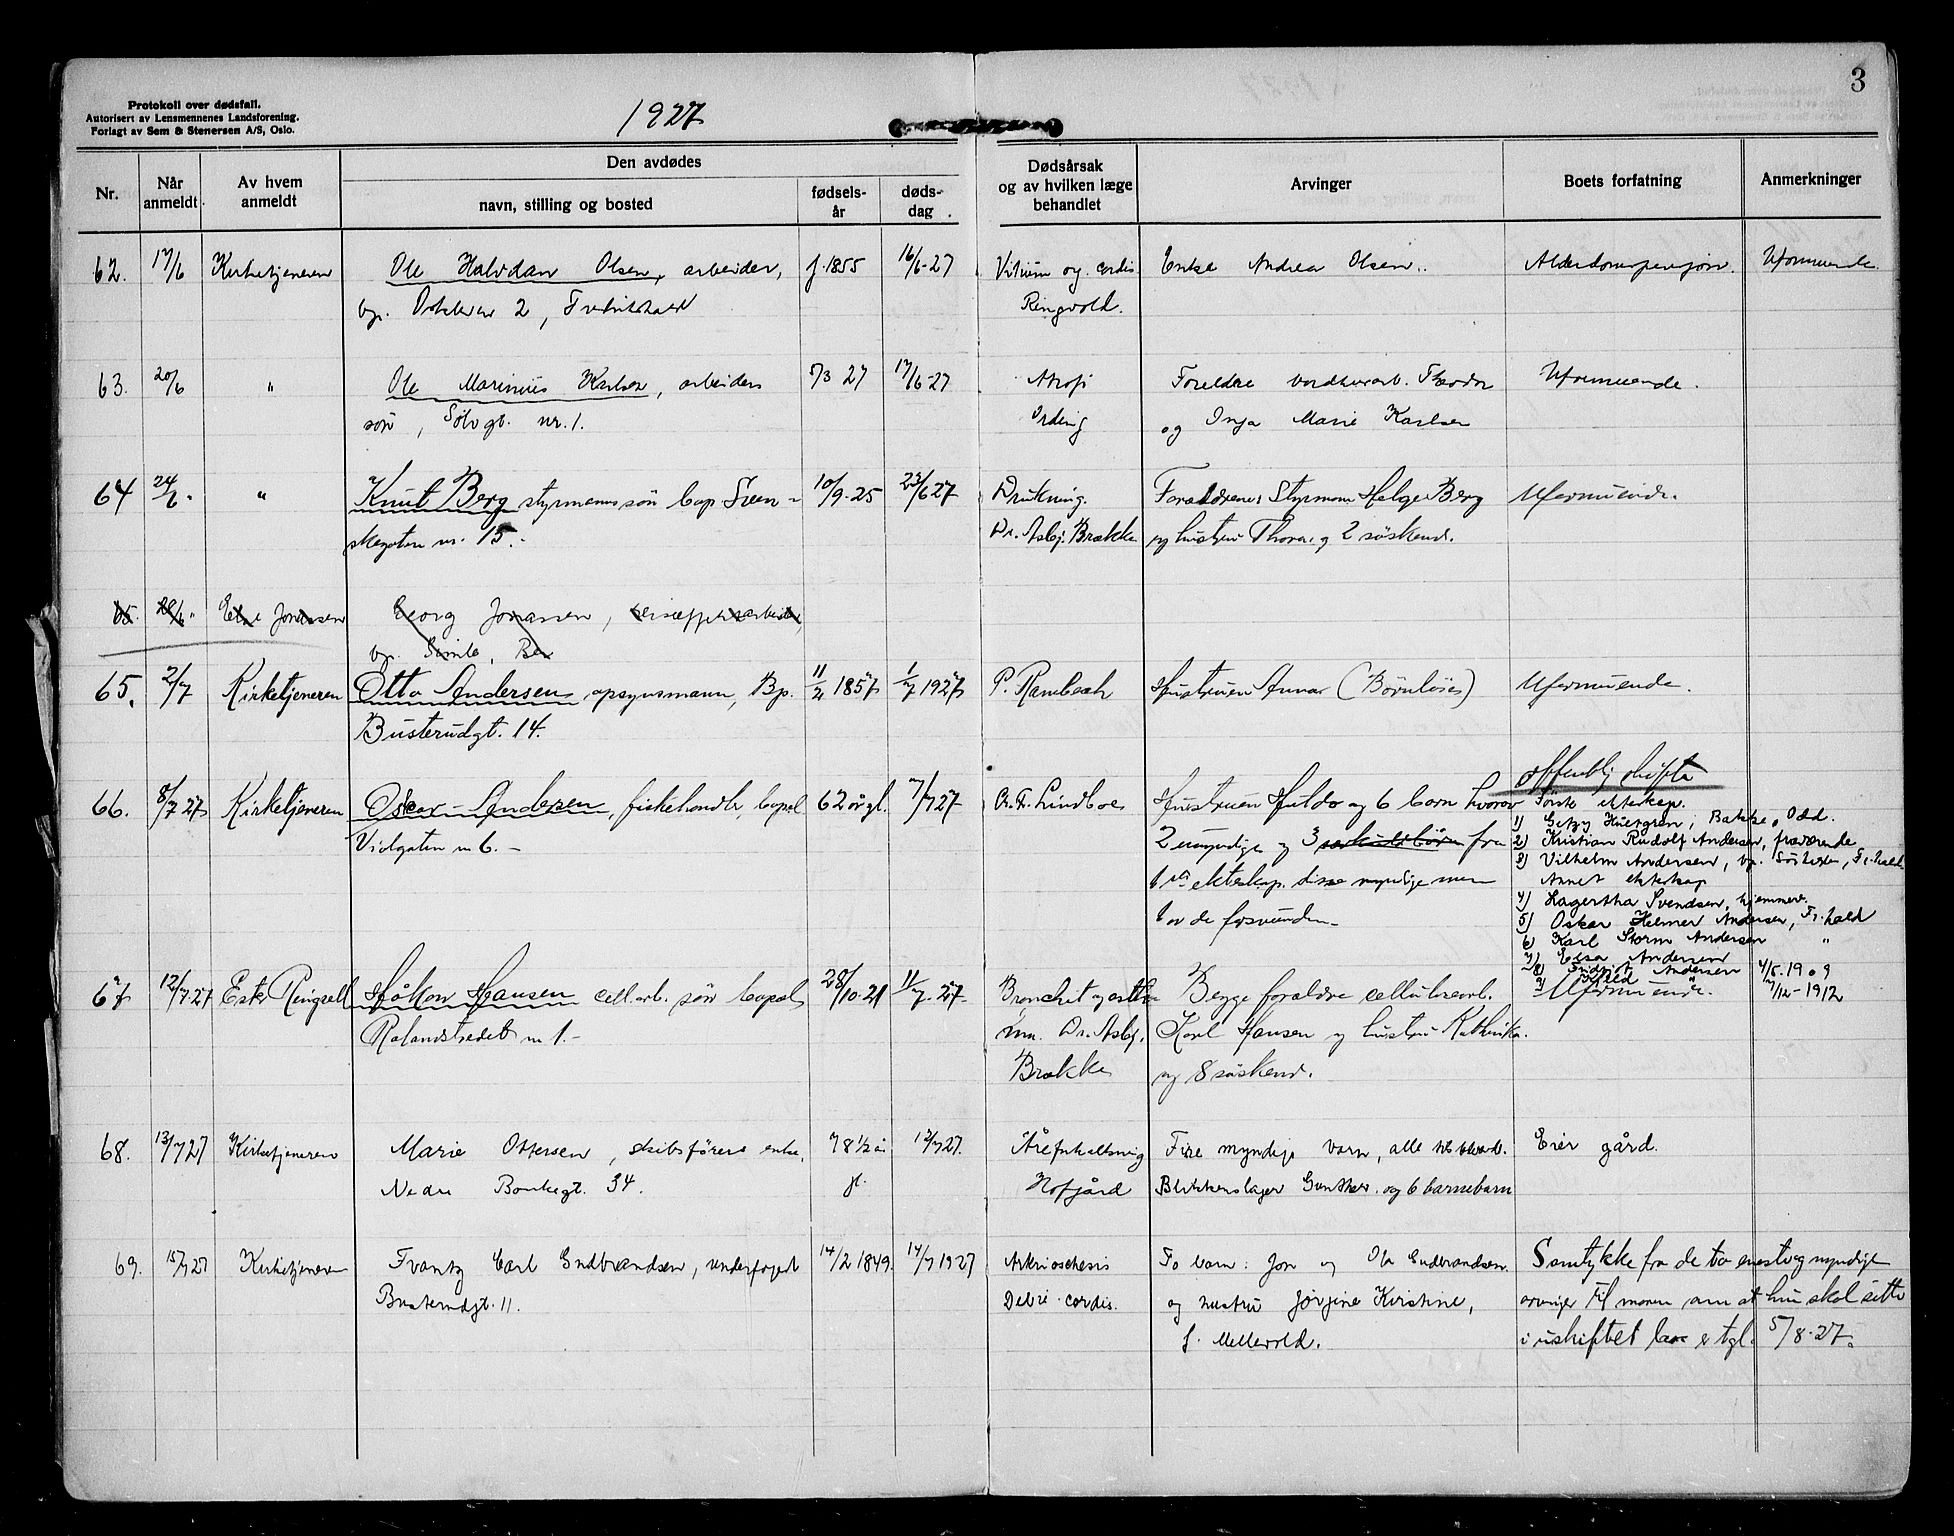 Protokoll over dødsfall.
Autorisert av Lensmennenes Landsforening.
Forlagt av Sem & Stenersen A/S, Oslo.
1927
3
Nr.
Når anmeldt
Av hvem anmeldt
Den avdødes
navn, stilling og bosted
fødsels-år
døds-dag
Dødsårsak og av hvilken læge behandlet
Arvinger
Boets forfatning
Anmerkninger
62. 17/6 Kirketjeneren Ole Halvdan Olsen, arbeider, f. 1855 16/6-27 Vitium og cordis Enke Andrea Olsen. Alderdomspensjon. Uformuende.
bp. 2, Fredrikshald Ringvold.
63. 20/6 " Ole Marinius Karlsen, arbeiders 5/3 27 17/6-27 Atrofi Foreldre Theodor Uformuende.
søn, Sølvgt. nr. 1. Ording og Inga Marie Karlsen
64 24/6. " Knut Berg styrmanns søn bop Sven- 10/9-25 23/6 27 Drukning. Forældrene Styrmann Helge Berg Uformuende.
skegaten nr. 15.- Dr. Asbj. Brække og hustru Thora og 2 søskend.
65. 28/6 Else Jonassen Georg Jonassen,
bp.
65. 2/7 Kirketjeneren Otto Andersen opsynsmann, Bp. 11/2 1857 1/7 1927 P. Rambech Hustruen Anna (Børnløse) Uformuende.
Busterudgt. 14.
66. 8/7 27 Kirketjeneren Oskar Andersen, fiskehandler, bopæl 62 år gl. 7/7 27 Chr. Fr. Lindboe Hustruen Hulda og 6 børn hvorav
Vidgaten nr 6.- 2 umyndige og 3 særkuldbørn fra
1ste ekteskap. disse myndige men
1 av de forsvunden-
Offentlig skifte
Første ekteskap.
1) Hultgren, Bakke, Odd.
2) Kristian Rudolf Andersen, fraværende
3) Vilhelm Andersen, bp. Fr.hald
Annet ekteskap
4) Lagertha Svendsen, hjemmev.
5) Oskar Helmer Andersen, Fr.hald
6) Karl Storm Andersen "
7) Elsa Andersen
8) Andersen 4/5-1909
9) 7/12-1912
67 12/7.27 Håkon Hansen cell.arb. søn bopæl 28/10-21 11/7.27 Bronchit og Begge forældre cellulosearb. Uformuende.
Rolandstredet nr 1.- Dr. Asbj. Karl Hansen og hustru Kathinka
Brække og 8 søskend.
68. 13/7 27 Kirketjeneren Marie Ottersen, skibsførers enke, 78 1/2 år 12/7 27. Åreforkalkning Fire myndige barn, alle Eier gård.
Nedre Bankegt. 34. gl. Hofgård Blikkenslager Gunther og 6 barnebarn
69. 15/7 27 Kirketjeneren Frantz Carl Gudbrandsen, underfoged 14/2 1849. 14/7 1927 To barn: Jon og Ole Gudbrandsen Samtykke fra de to eneste og myndige
Busterudgt. 11. cordis. og hustru Jørgine Kristine, arvinger til moren om at hun skal sitte
f. Mellerold. i uskiftet bo er tgl. 5/8-27.